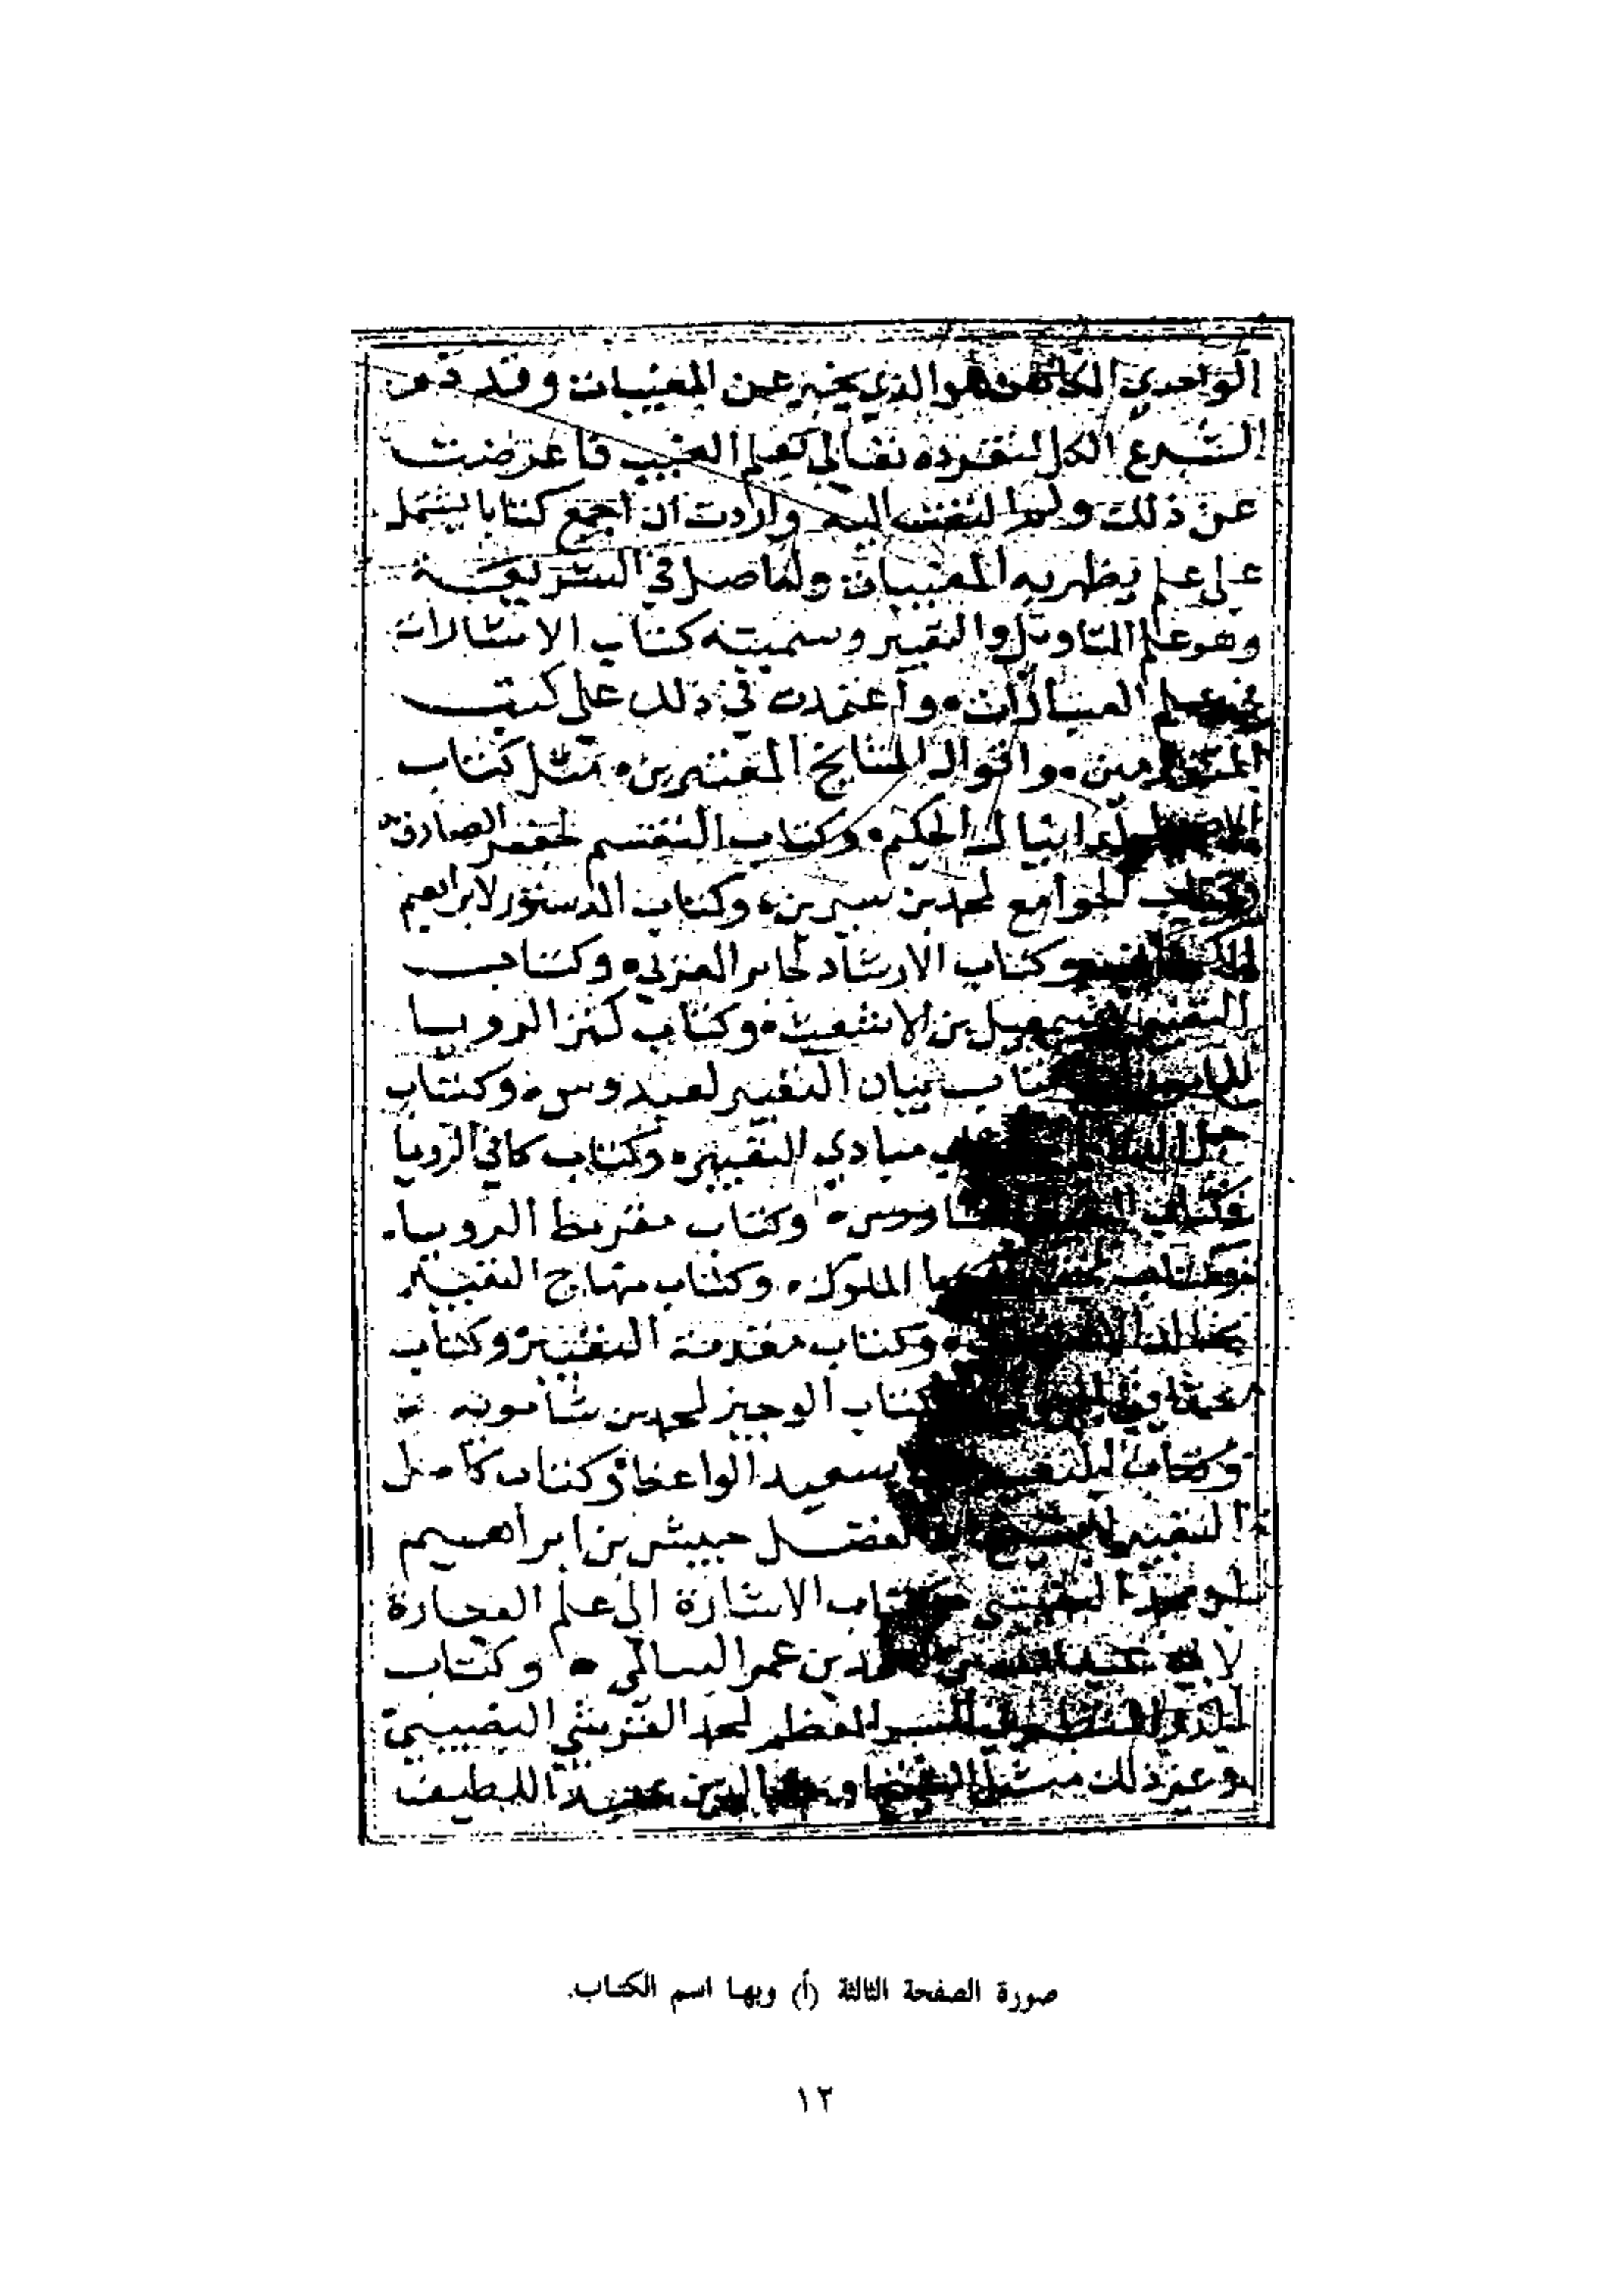 الواحدي الكاهن هو الذي يخبر عن المغيبات وقد ذم
الشرع الكل لتفرده تعالى بعلم الغيب فاعرضت
عن ذلك ولم التفت اليه واردت ان اجمع كتابا يشتمل
على علم يظهر به المغيبات وله اصل في الشريعة
وهو علم التاويل والتعبير وسميته كتاب الاشارات
في علم العبارات واعتمدت في ذلك على كتب
المتقدمين واقوال المشايخ المعتبرين مثل كتاب
لدانيال الحكيم وكتاب التقسيم لجعفر الصادق
وكتاب الجوامع لمحمد بن سيرين وكتاب الدستور لابراهيم
وكتاب الارشاد لجابر المغربي وكتاب
التعبير لاسمعيل بن الاشعث وكتاب كنز الرويا
كتاب بيان التعبير لعبدوس وكتاب
جمل مبادي التعبير وكتاب كافي الرويا
وكتاب وكتاب مقرمط الرويا
وكتاب الملوك وكتاب منهاج التعبير
وكتاب مقدمة التعبير وكتاب
كتاب الوجيز لمحمد بن شامويه
وكتاب التعبير سعيد الواعظ وكتاب كامل
التعبير للشيخ الفضل حبيش بن ابراهيم
التفليسي كتاب الاشارة الى علم العبارة
لابي عبد الله محمد بن عمر السالمي وكتاب
الدر المنظم في السر المعظم لمحمد القرشي النصيبي
وغير ذلك مثل عبد اللطيف
صورة الصفحة الثالثة (أ) وبها اسم الكتاب.
١٢